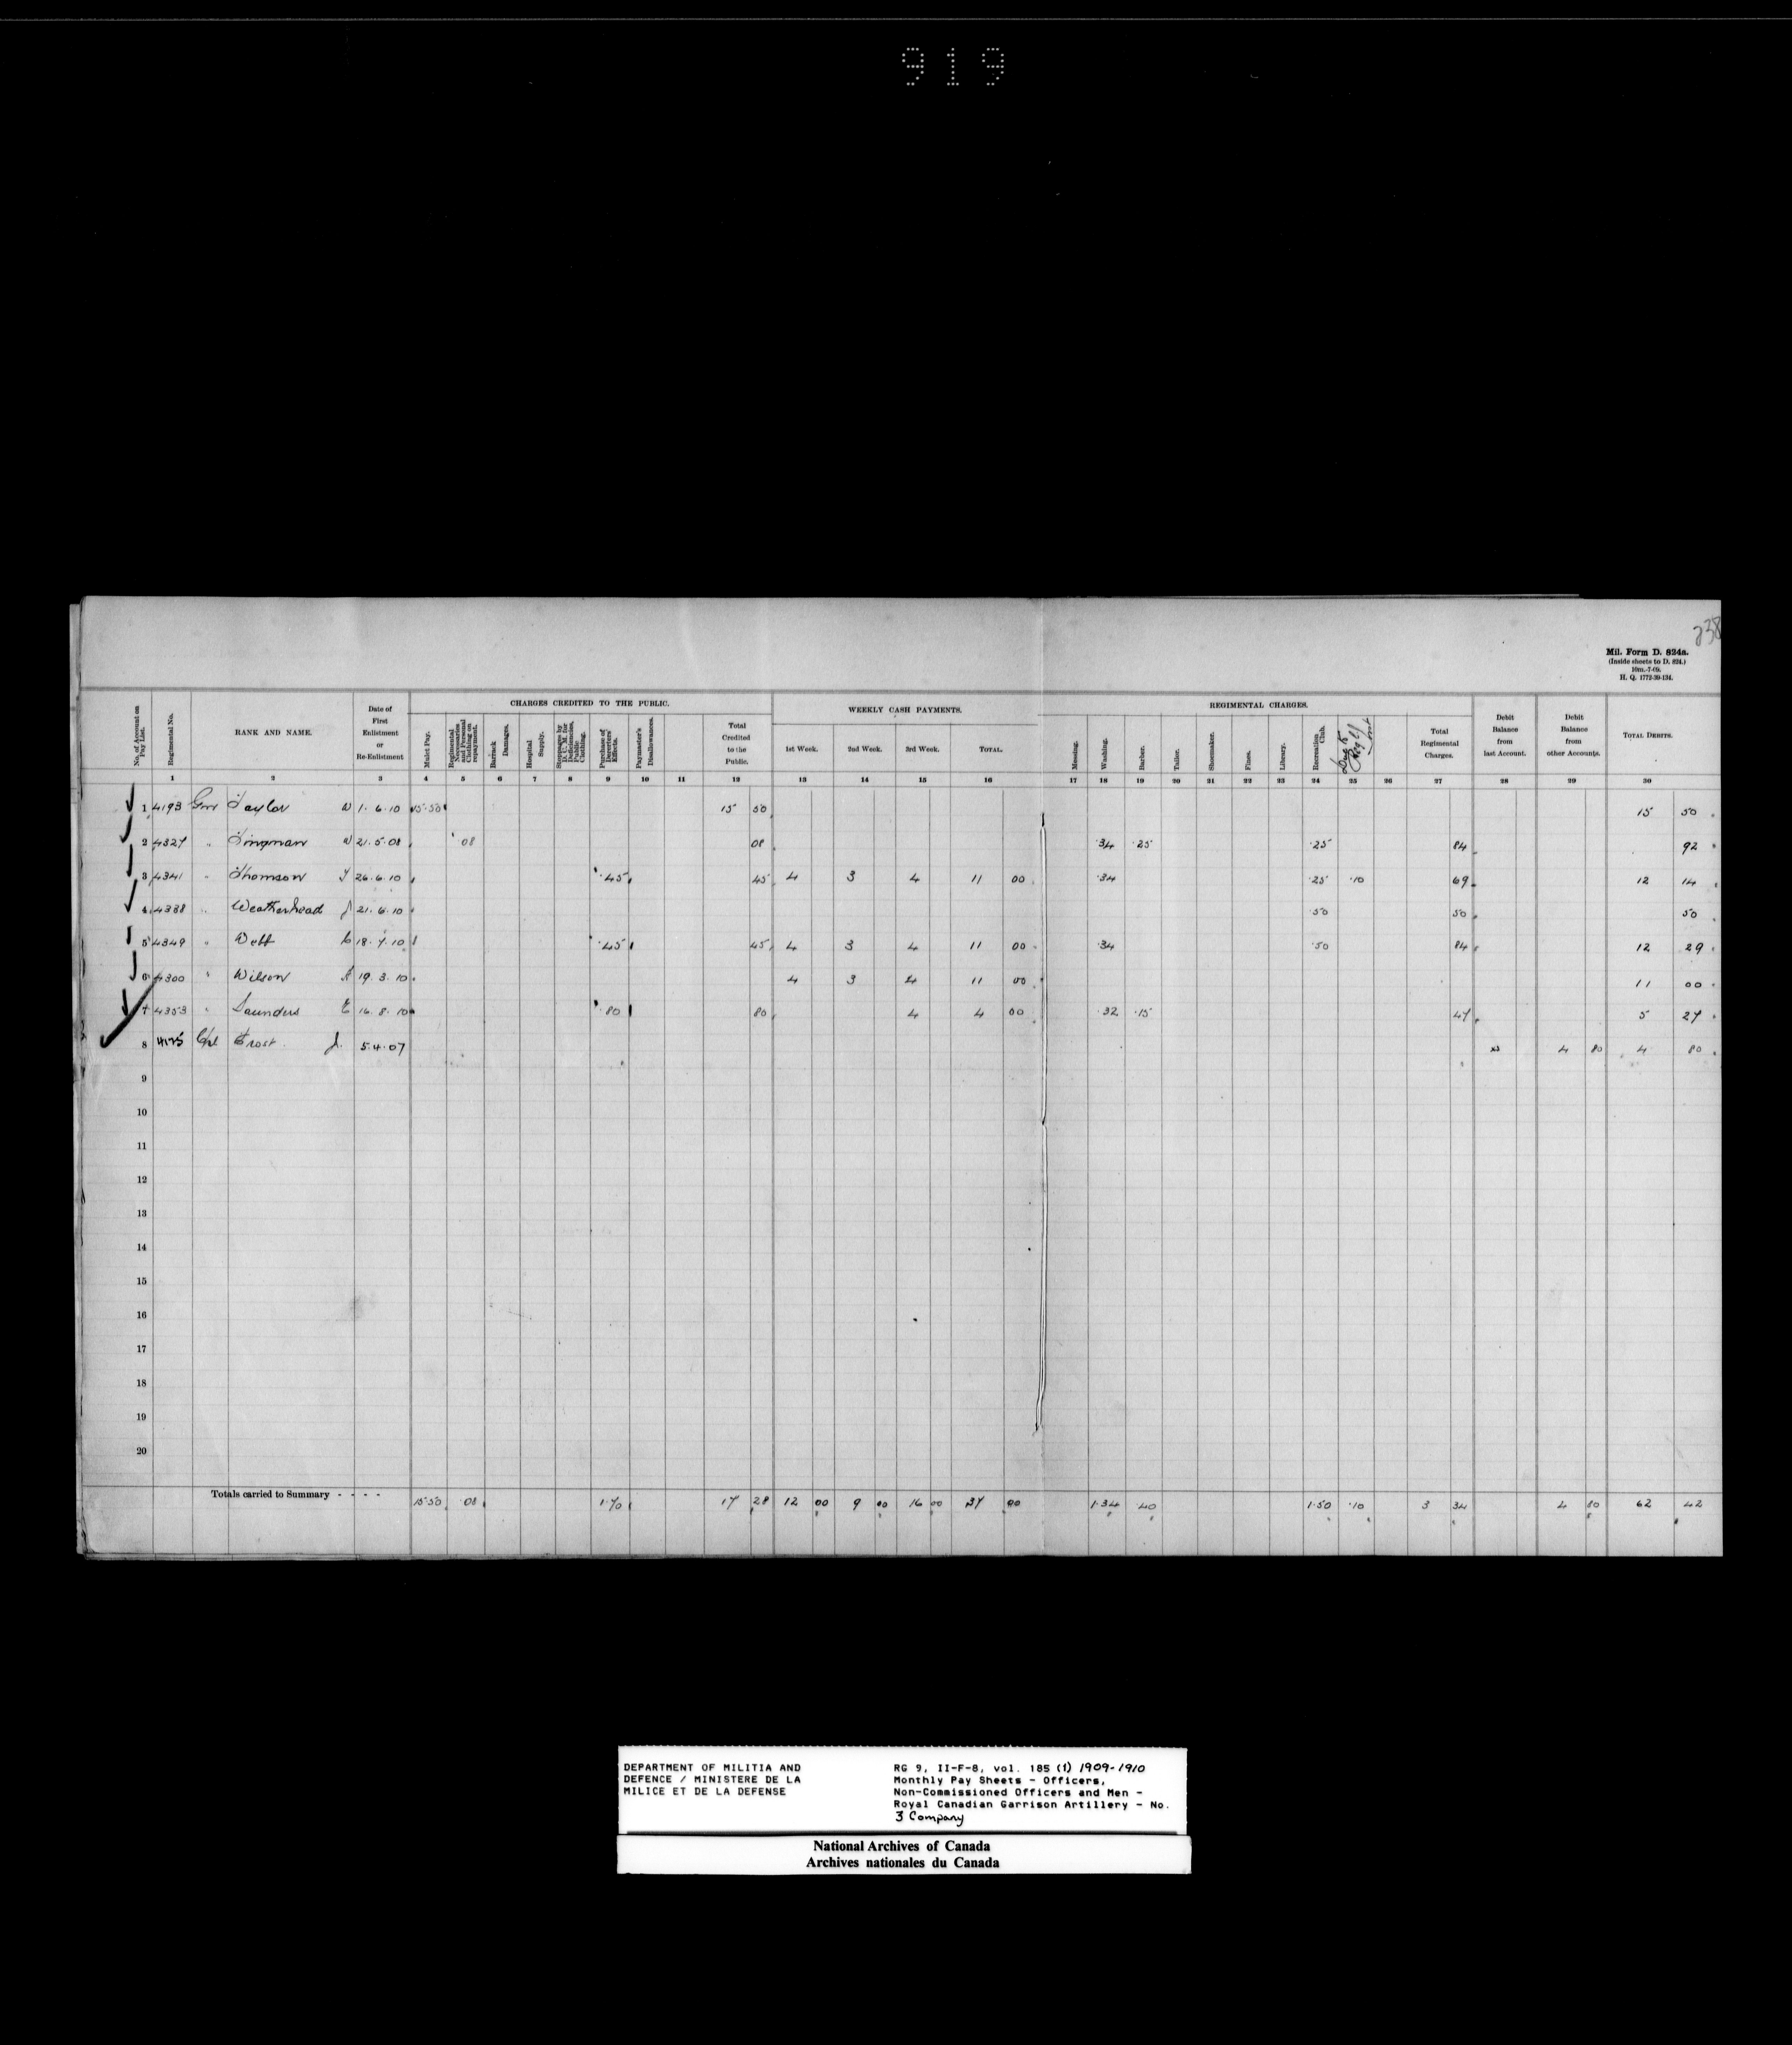 919
238
Mil. Form D. 824a.
(Inside sheets to D. 824.)
10m.-7-09.
H. Q. 1772-39-134.
No. of Account on Pay List. Regimental No. RANK AND NAME. Date of First Enlistment or Re-Enlistment
CHARGES CREDITED TO THE PUBLIC.
Mulct Pay. Regimental Necessaries and Personal Clothing on repayment. Barrack Damages. Hospital Supply. Stoppages by D.C.M. for Deficiencies, Public Clothing. Purchase of Deserters' Effects. Paymaster's Disallowances. Total Credited to the Public.
WEEKLY CASH PAYMENTS.
1st Week. 2nd Week. 3rd Week. TOTAL.
REGIMENTAL CHARGES.
Messing. Washing. Barber. Tailor. Shoemaker. Fines. Library. Recreation Club. Total Regimental Charges.
Debit Balance from last Account. Debit Balance from other Accounts. TOTAL DEBITS.
1 2 3 4 5 6 7 8 9 10 11 12 13 14 15 16 17 18 19 20 21 22 23 24 25 26 27 28 29 30
1 4193 Gnr Taylor W 1.6.10 15.50 15 50 15 50
2 4327 " Tingman W 21.5.08 08 08 .34 .25 .25 84 92
3 4341 " Thomson J 26.6.10 .45 45 4 3 4 11 00 .34 .25 .10 69 12 14
4 4338 " Weatherhead J 21.6.10 .50 50 50
5 4349 " Webb C 18.7.10 .45 45 4 3 4 11 00 .34 .50 84 12 29
6 4300 " Wilson R 19.3.10 4 3 4 11 00 11 00
7 4353 " Saunders E 16.8.10 .80 80 4 4 00 .32 .15 47 5 27
8 4175 Cpl Frost J. 5.4.07 4 80 4 80
9
10
11
12
13
14
15
16
17
18
19
20
Totals carried to Summary - - - - 15.50 .08 1.70 17 28 12 00 9 00 16 00 37 00 1.34 .40 1.50 .10 3 34 4 80 62 42
DEPARTMENT OF MILITIA AND
DEFENCE / MINISTERE DE LA
MILICE ET DE LA DEFENSE
RG 9, II-F-8, vol. 185 (1) 1909-1910
Monthly Pay Sheets - Officers,
Non-Commissioned Officers and Men -
Royal Canadian Garrison Artillery - No.
3 Company
National Archives of Canada
Archives nationales du Canada